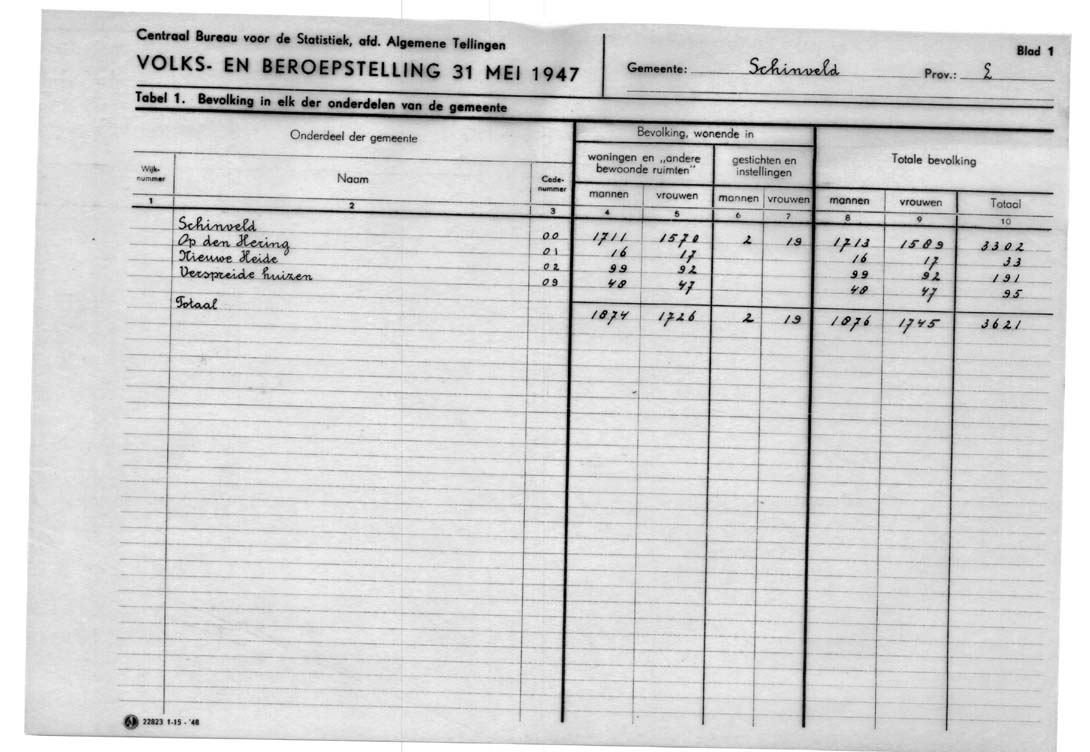 Centraal Bureau voor de Statistiek, afd. Algemene Tellingen
VOLKS- EN BEROEPSTELLING 31 MEI 1947
Gemeente: Schinveld Prov.: L
Blad 1
Tabel 1. Bevolking in elk der onderdelen van de gemeente
Onderdeel der gemeente
Bevolking, wonende in
Totale bevolking
woningen en „andere bewoonde ruimten"
gestichten en instellingen
Wijk-nummer Naam Code-nummer mannen vrouwen mannen vrouwen mannen vrouwen Totaal
1 2 3 4 5 6 7 8 9 10
Schinveld 00 1711 1570 2 19 1713 1589 3302
Op den Hering 01 16 17 16 17 33
Nieuwe Heide 02 99 92 99 92 191
Verspreide huizen 09 48 47 48 47 95
Totaal 1874 1726 2 19 1876 1745 3621
22823 1-15 - '48